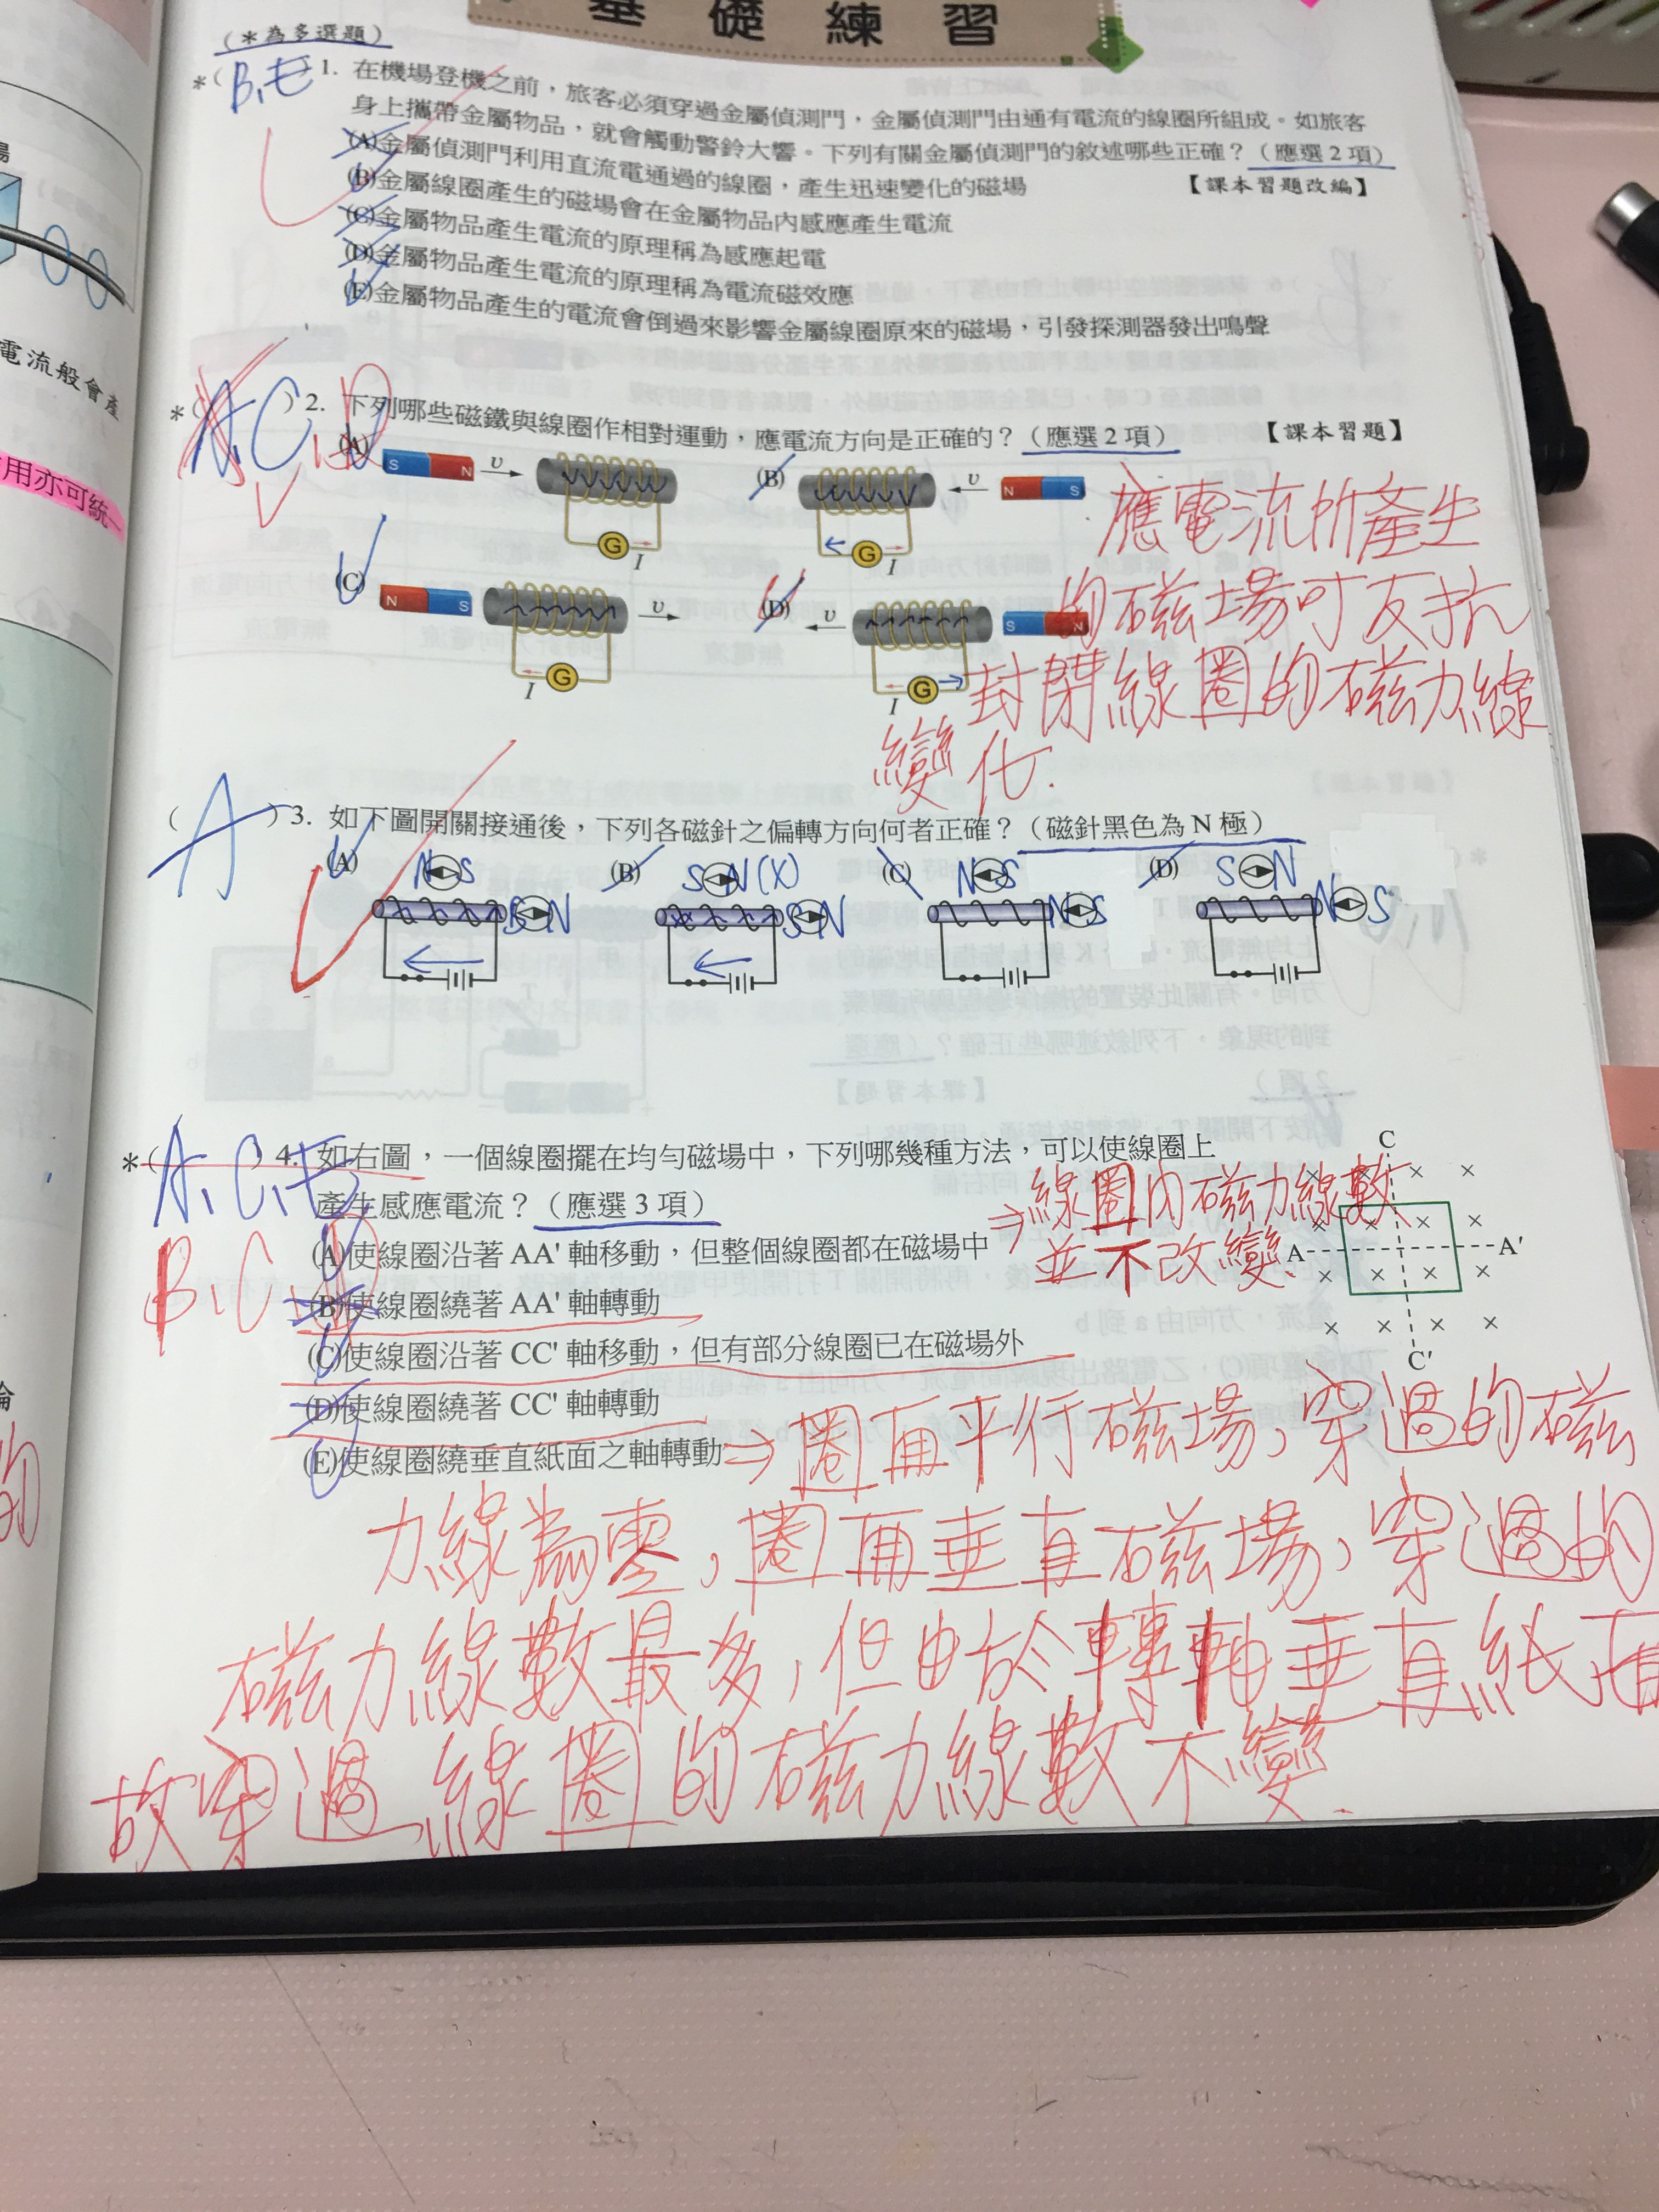 基礎練習
(＊為多選題)
＊( B、E )1. 在機場登機之前，旅客必須穿過金屬偵測門，金屬偵測門由通有電流的線圈所組成。如旅客
身上攜帶金屬物品，就會觸動警鈴大響。下列有關金屬偵測門的敘述哪些正確？（應選2項）
【課本習題改編】
(A)金屬偵測門利用直流電通過的線圈，產生迅速變化的磁場
(B)金屬線圈產生的磁場會在金屬物品內感應產生電流
(C)金屬物品產生電流的原理稱為感應起電
(D)金屬物品產生電流的原理稱為電流磁效應
(E)金屬物品產生的電流會倒過來影響金屬線圈原來的磁場，引發探測器發出鳴聲
＊( A、C、D )2. 下列哪些磁鐵與線圈作相對運動，應電流方向是正確的？（應選2項） 【課本習題】
(A) S N υ G I
(B) υ N S G I
(C) N S υ G I
(D) υ S N G I
應電流所產生
的磁場可反抗
封閉線圈的磁力線
變化.
( A )3. 如下圖開關接通後，下列各磁針之偏轉方向何者正確？（磁針黑色為N極）
(A) N S S N
(B) S N (X) S N
(C) N S N S
(D) S N N S
＊( A、C、E )4. 如右圖，一個線圈擺在均勻磁場中，下列哪幾種方法，可以使線圈上
產生感應電流？（應選3項）
B、C、D
(A)使線圈沿著AA'軸移動，但整個線圈都在磁場中
⇒線圈內磁力線數
並不改變.
(B)使線圈繞著AA'軸轉動
(C)使線圈沿著CC'軸移動，但有部分線圈已在磁場外
(D)使線圈繞著CC'軸轉動
(E)使線圈繞垂直紙面之軸轉動
⇒圈面平行磁場，穿過的磁
力線為零，圈面垂直磁場，穿過的
磁力線數最多，但由於轉軸垂直紙面
故穿過線圈的磁力線數不變.
C
A A'
C'
電流般會產
用亦可統一